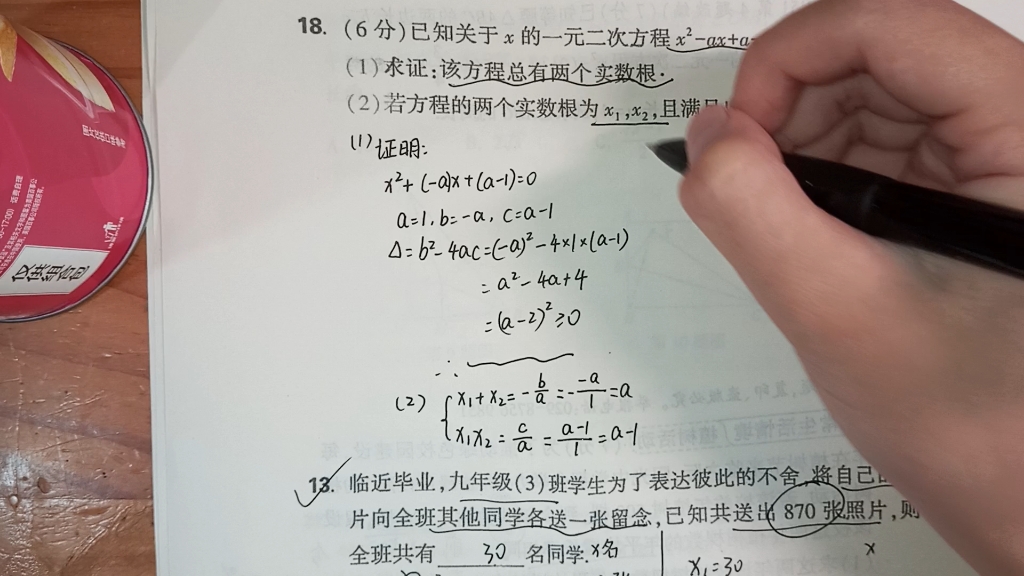 18. (6分)已知关于x的一元二次方程x²-ax+a-
(1)求证:该方程总有两个实数根.
(2)若方程的两个实数根为x₁,x₂,且满足
(1)证明:
x²+(-a)x+(a-1)=0
a=1,b=-a,c=a-1
Δ=b²-4ac=(-a)²-4×1×(a-1)
=a²-4a+4
=(a-2)²≥0
∴
(2) { x₁+x₂=-b/a=--a/1=a
x₁x₂=c/a=a-1/1=a-1
13. 临近毕业,九年级(3)班学生为了表达彼此的不舍,将自己的
片向全班其他同学各送一张留念,已知共送出870张照片,则
全班共有 30 名同学. x名
x₁=30
x
仅供组合包